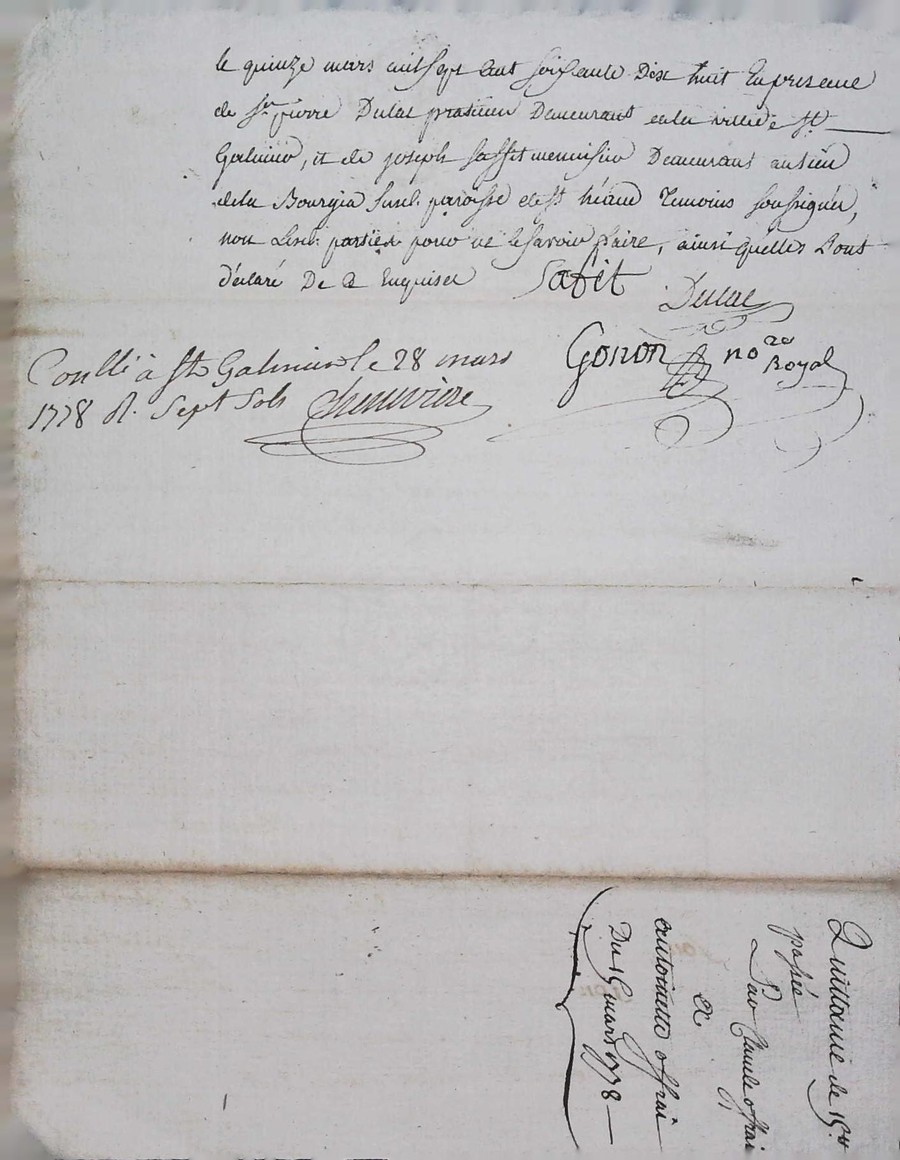 le quinze mars mil sept cent soixante Dix huit En presence
de Sr pierre Dulac praticien Demeurant en la ville de St
Galmier, et de joseph saffit menuisier Demeurant au lieu
dela Bourgia susd. paroisse de st héand Temoins soussignés,
non Lesd. parties pour ne le savoir faire, ainsi quelles L'ont
déclaré De ce Enquises
Safit
Dulac
Gonon nore Royal
Conllé à St Galmier le 28 mars
1778 R. Sept Sols Chenevière
Quittance de 15#
passée
Par Claude offrai
a
antoinette offrai
Du 15 mars 1778